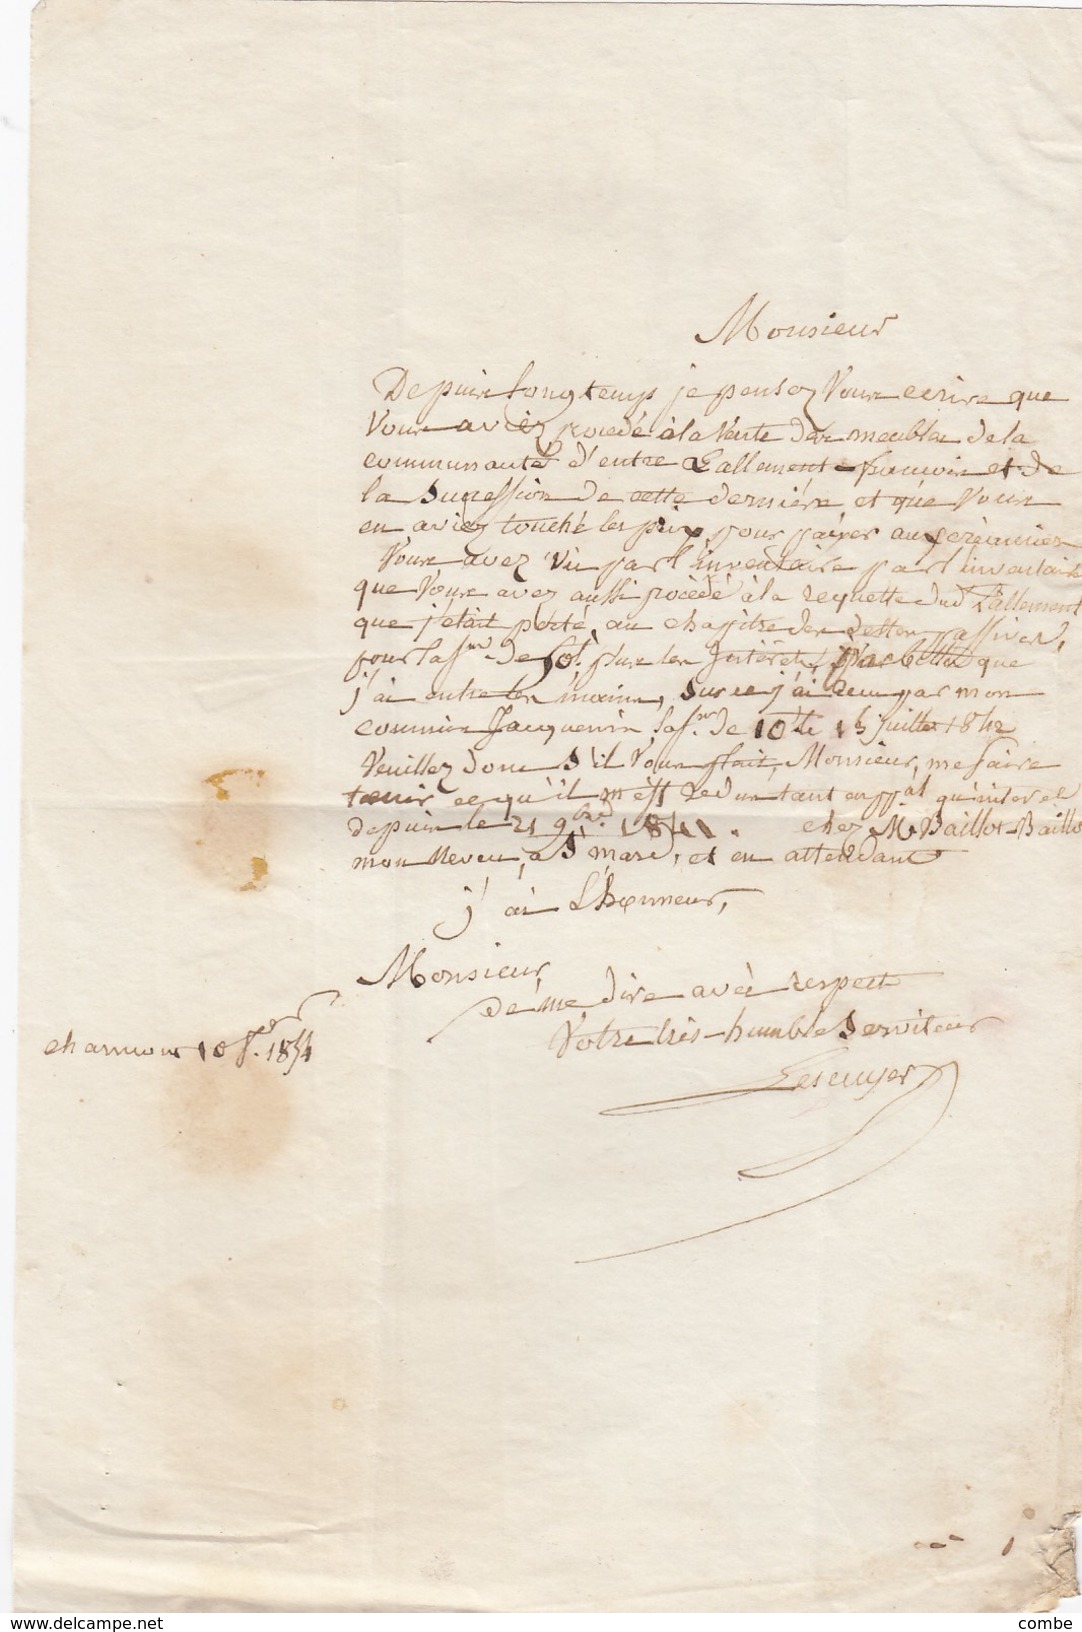 Monsieur
Depuis longtemps je pensez Vous ecrire que
Vous aviez procédé à la Vente des meubles de la
communauté d'entre Lallement et de
la Sucession de cette dernière et que Vous
en aviez touché les prix pour païer aux créanciers
Vous avez vu par l'inventaire par l'inventaire
que Vous avez aussi procèdé à la requette dud Lallement
que j'etait porté au chapitre des dettes passives,
pour la so.me de 60f. plus les Intérêts, par billet que
j'ai entre les mains, sur ce j'ai recu par mon
commis Jacquenin, la s.me de 10f. le 15 juillet 1842
Veuillez donc S'il Vous plait, Monsieur, me faire
tenir ce qu'il m'est redu tant en ppal qu'interet
depuis le 21 9bre 1841. chez M. Baillot-Baillo
mon Neveu, à St mard, et en attendant
j'ai L'honneur,
Monsieur,
de me dire avec respect
Votre très-humble Serviteur
Lesemyer
10 1854
delcampe.net
combe